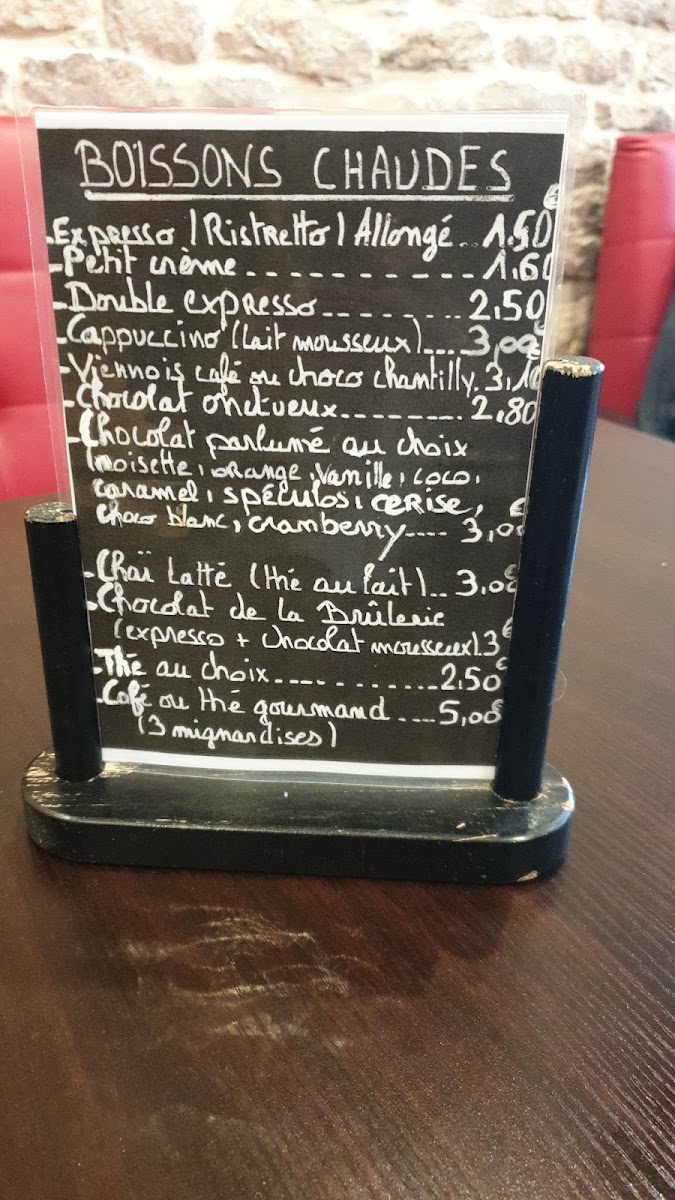 BOISSONS CHAUDES
- Expresso / Ristretto / Allongé .. 1.50€
- Petit crème ----------- 1.60
- Double expresso -------- 2.50
- Cappuccino (lait mousseux) ---- 3,00€
- Viennois café ou choco chantilly. 3,10
- Chocolat onctueux -------- 2.80
- Chocolat parfumé au choix
(noisette, orange, vanille, coco,
caramel, spéculos, cerise,
choco blanc, cramberry ---- 3,00€
- Chaï Latté (thé au lait) .. 3,00€
- Chocolat de la Brûlerie
(expresso + chocolat mousseux) 3€
- Thé au choix ----------- 2.50€
- Café ou thé gourmand ---- 5,00€
(3 mignardises)